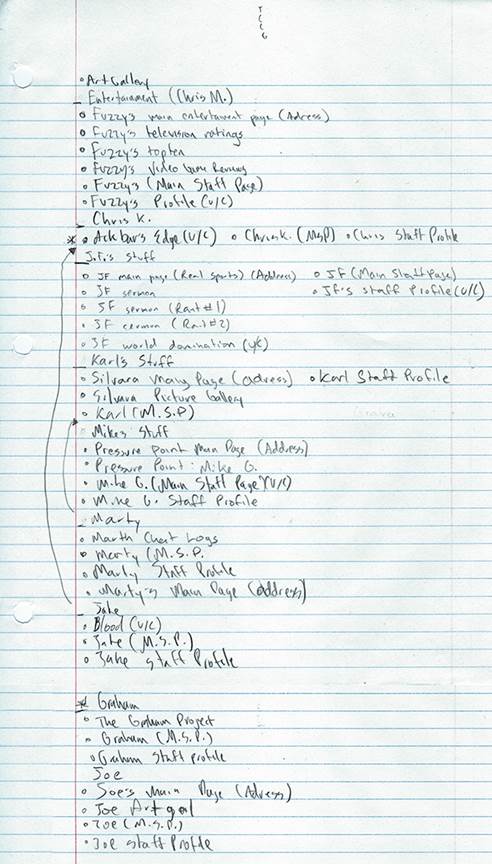 T
C
C
G
• Art Gallery
– Entertainment (Chris M.)
• Fuzzy's main entertament page (Adress)
• Fuzzy's television ratings
• Fuzzy's top ten
• Fuzzy's Video Game
• Fuzzy's (Main Staff Page)
• Fuzzy's Profile (U/C)
– Chris K.
* • Ackbar's Edge (U/C) • Chris K. (MSP) • Chris Staff Profile
J.F.'s Stuff
• JF main page (Real sports) (Address) • JF (Main Staff Page)
• JF sermon • JF's staff Profile (U/C)
• JF sermon (Rant #1)
• JF cermon (Rant #2)
• JF world domination (U/C)
– Karl's Stuff
• Silvara Page (address) • Karl Staff Profile
• Silvara Picture Gallery
• Karl (M.S.P)
Mikes Stuff
• Pressure point Main Page (Address)
• Pressure Point: Mike G.
• Mike G. (Main Staff Page) (U/C)
• Mike G. Staff Profile
– Marty
• Chat Logs
• Marty (M.S.P.
• Marty Staff Profile
• Marty's Main Page (address)
– Jake
• Blood (U/C)
• Jake (M.S.P.)
• Jake staff Profile
* Graham
• The Graham Project
• Graham (M.S.P.)
• Graham Staff profile
Joe
• Joe's Main Page (Adress)
• Joe Art gal
• Joe (M.S.P.)
• Joe staff Profile